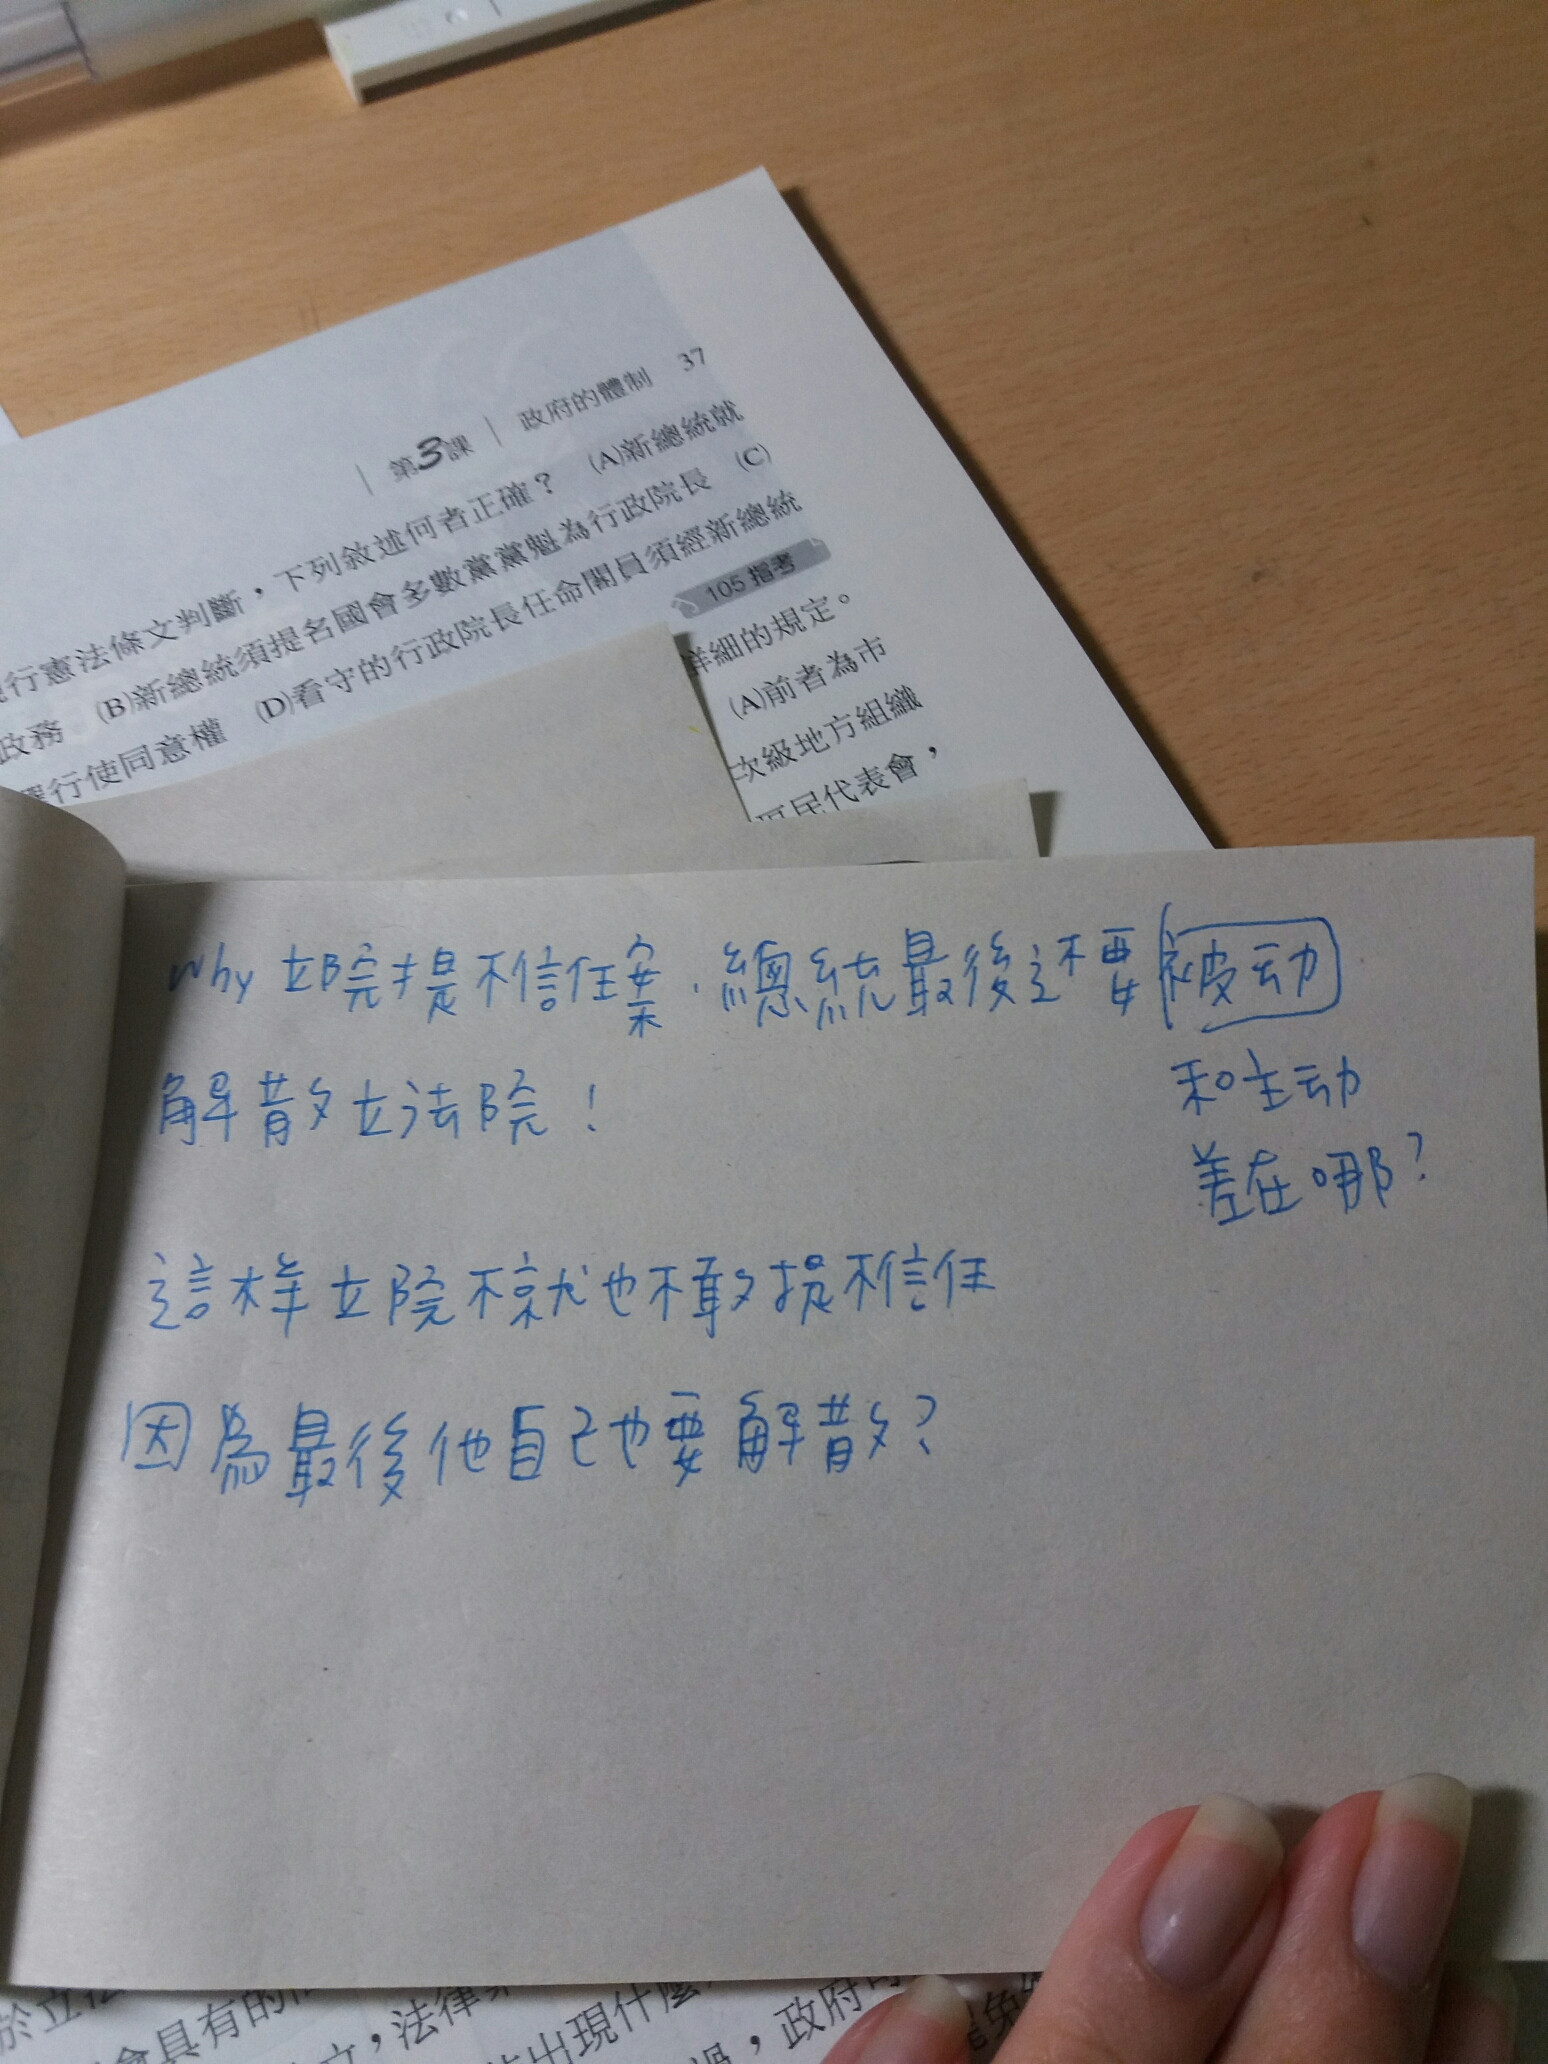 第3課 | 政府的體制 37
行憲法條文判斷，下列敘述何者正確？ (A)新總統就
政務 (B)新總統須提名國會多數黨黨魁為行政院長 (C)
行使同意權 (D)看守的行政院長任命閣員須經新總統
105 指考
詳細的規定。
(A)前者為市
次級地方組織
區民代表會，
why 立院提不信任案．總統最後還要被动
解散立法院！
和主动
差在哪？
這样立院不就也不敢提不信任
因為最後他自己也要解散？
會具有的
，法律
出現什麼
，政府